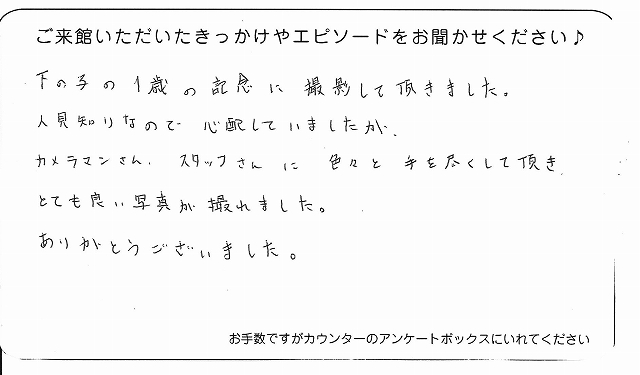 ご来館いただいたきっかけやエピソードをお聞かせください♪
下の子の1歳の記念に撮影して頂きました。
人見知りなので心配していましたが、
カメラマンさん、スタッフさんに色々と手を尽くして頂き
とても良い写真が撮れました。
ありがとうございました。
お手数ですがカウンターのアンケートボックスにいれてください